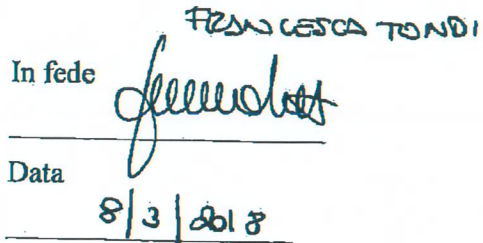 FRANCESCA TONDI
In fede
Data
8/3/2018